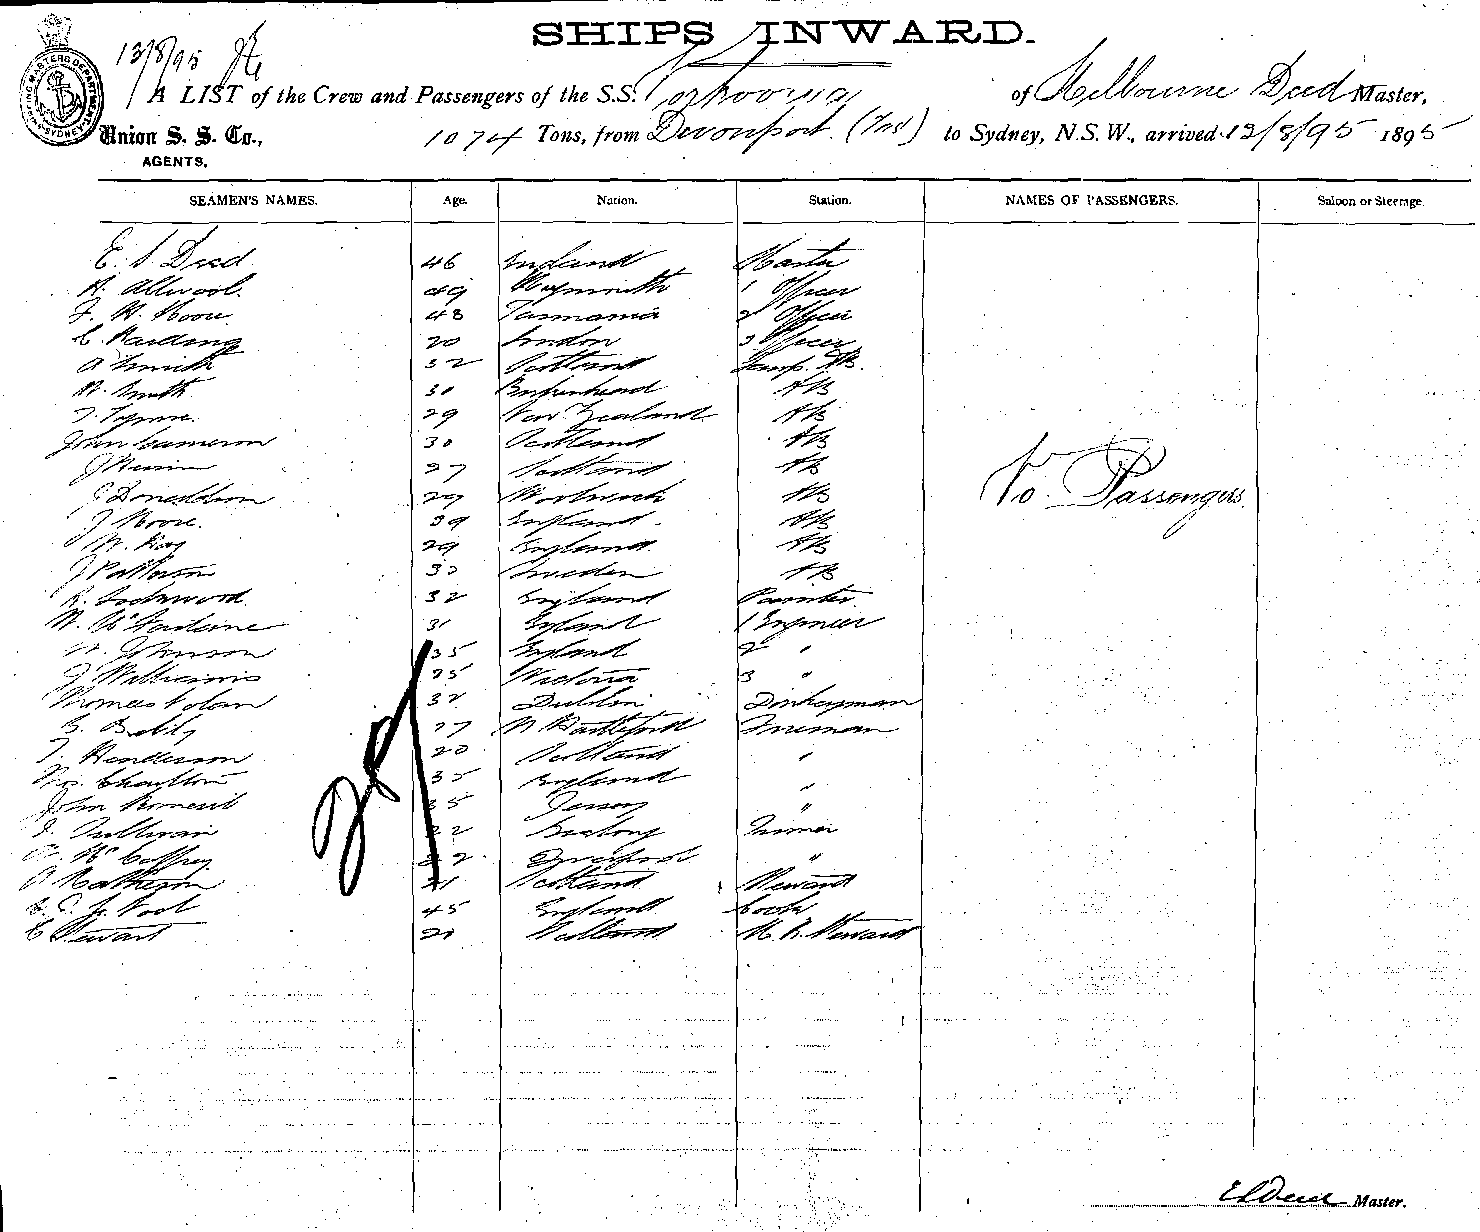 SHIPS INWARD.
13/8/95
SHIPPING MASTERS DEPARTMENT SYDNEY
A LIST of the Crew and Passengers of the S.S. of Melbourne Deed Master,
Union S. S. Co., 1074 Tons, from Devonport (Tas) to Sydney, N.S.W., arrived 13/8/95 1895
AGENTS.
SEAMEN'S NAMES. Age. Nation. Station. NAMES OF PASSENGERS. Saloon or Steerage.
E. S Deed 46 England Master
A. Allwool. 49 Weymouth 1 Officer
F. H. Moore 48 Tasmania 2 Officer
C. Harding 20 London 3 Officer
A Smith 32 Scotland Lamp. AB.
R. Smith 30 Birkenhead AB
29 New Zealand AB
John Cameron 30 Scotland AB
27 Scotland AB
J Donaldson 29 Woolwich AB
No Passengers
J Moore. 39 England AB
W. Ray 29 England AB
J Patterson 32 Sweden AB
R. Lockwood 32 England
31 England 1 Engineer
Johnson 35 England 2 "
J Williams 25 Victoria 3 "
Thomas Nolan 32 Dublin Donkeyman
27 Fireman
J. Henderson 20 Scotland "
Charlton 35 England "
John Romeril 35 Jersey "
J. Sullivan 22 Geelong Trimmer
McCaffrey 22 Liverpool "
A Matheson 21 Scotland Steward
45 England Cook
C Stewart 21 Scotland Steward
27
E S Deed Master.